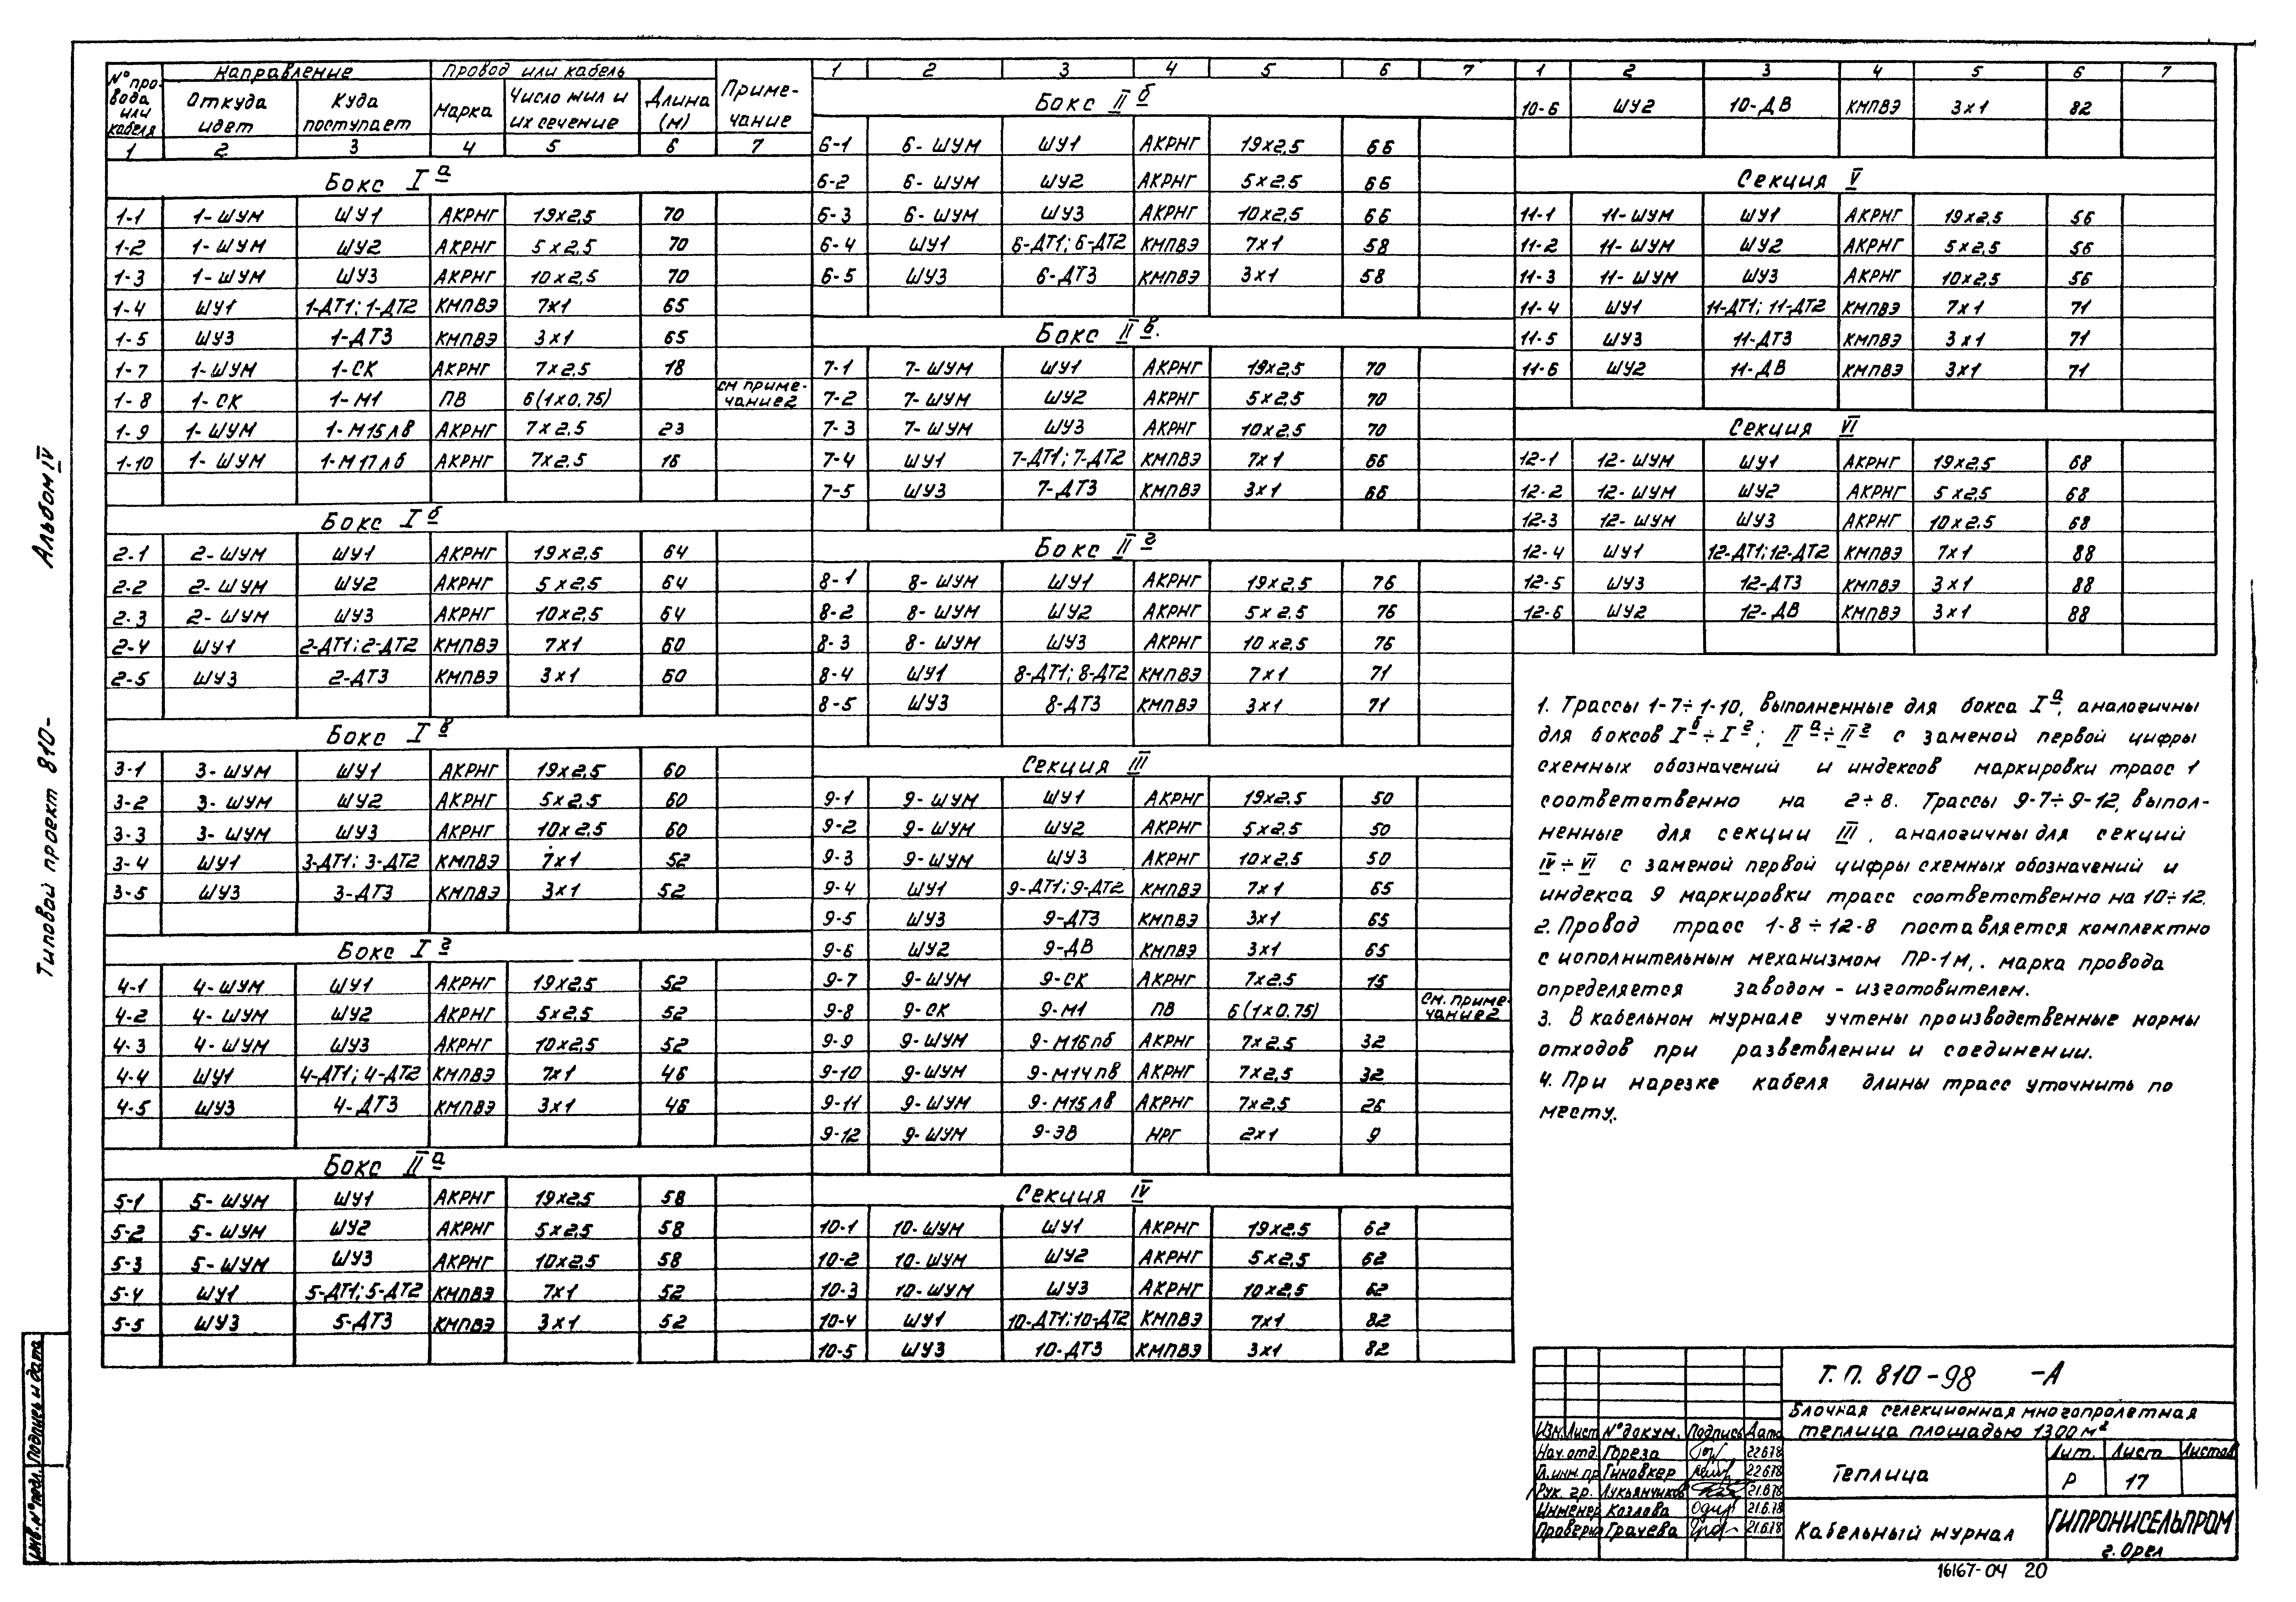 Альбом IV
Типовой проект 810-
Инв. № подл. Подпись и дата
№ про- Направление Провод или кабель Приме-
вода или кабеля Откуда идет Куда поступает Марка Число жил и их сечение Длина (м) чание
1 2 3 4 5 6 7
Бокс I а
1-1 1-ШУМ ШУ1 АКРНГ 19х2,5 70
1-2 1-ШУМ ШУ2 АКРНГ 5х2,5 70
1-3 1-ШУМ ШУ3 АКРНГ 10х2,5 70
1-4 ШУ1 1-ДТ1; 1-ДТ2 КМПВЭ 7х1 65
1-5 ШУ3 1-ДТ3 КМПВЭ 3х1 65
1-7 1-ШУМ 1-СК АКРНГ 7х2,5 18
1-8 1-СК 1-М1 ПВ 6(1х0,75) см приме-чание 2
1-9 1-ШУМ 1-М15лв АКРНГ 7х2,5 23
1-10 1-ШУМ 1-М17лб АКРНГ 7х2,5 16
Бокс I б
2-1 2-ШУМ ШУ1 АКРНГ 19х2,5 64
2-2 2-ШУМ ШУ2 АКРНГ 5х2,5 64
2-3 2-ШУМ ШУ3 АКРНГ 10х2,5 64
2-4 ШУ1 2-ДТ1; 2-ДТ2 КМПВЭ 7х1 60
2-5 ШУ3 2-ДТ3 КМПВЭ 3х1 60
Бокс I в
3-1 3-ШУМ ШУ1 АКРНГ 19х2,5 60
3-2 3-ШУМ ШУ2 АКРНГ 5х2,5 60
3-3 3-ШУМ ШУ3 АКРНГ 10х2,5 60
3-4 ШУ1 3-ДТ1; 3-ДТ2 КМПВЭ 7х1 52
3-5 ШУ3 3-ДТ3 КМПВЭ 3х1 52
Бокс I г
4-1 4-ШУМ ШУ1 АКРНГ 19х2,5 52
4-2 4-ШУМ ШУ2 АКРНГ 5х2,5 52
4-3 4-ШУМ ШУ3 АКРНГ 10х2,5 52
4-4 ШУ1 4-ДТ1; 4-ДТ2 КМПВЭ 7х1 46
4-5 ШУ3 4-ДТ3 КМПВЭ 3х1 46
Бокс II а
5-1 5-ШУМ ШУ1 АКРНГ 19х2,5 58
5-2 5-ШУМ ШУ2 АКРНГ 5х2,5 58
5-3 5-ШУМ ШУ3 АКРНГ 10х2,5 58
5-4 ШУ1 5-ДТ1; 5-ДТ2 КМПВЭ 7х1 52
5-5 ШУ3 5-ДТ3 КМПВЭ 3х1 52
1 2 3 4 5 6 7
Бокс II б
6-1 6-ШУМ ШУ1 АКРНГ 19х2,5 66
6-2 6-ШУМ ШУ2 АКРНГ 5х2,5 66
6-3 6-ШУМ ШУ3 АКРНГ 10х2,5 66
6-4 ШУ1 6-ДТ1; 6-ДТ2 КМПВЭ 7х1 58
6-5 ШУ3 6-ДТ3 КМПВЭ 3х1 58
Бокс II в.
7-1 7-ШУМ ШУ1 АКРНГ 19х2,5 70
7-2 7-ШУМ ШУ2 АКРНГ 5х2,5 70
7-3 7-ШУМ ШУ3 АКРНГ 10х2,5 70
7-4 ШУ1 7-ДТ1; 7-ДТ2 КМПВЭ 7х1 66
7-5 ШУ3 7-ДТ3 КМПВЭ 3х1 66
Бокс II г
8-1 8-ШУМ ШУ1 АКРНГ 19х2,5 76
8-2 8-ШУМ ШУ2 АКРНГ 5х2,5 76
8-3 8-ШУМ ШУ3 АКРНГ 10х2,5 76
8-4 ШУ1 8-ДТ1; 8-ДТ2 КМПВЭ 7х1 71
8-5 ШУ3 8-ДТ3 КМПВЭ 3х1 71
Секция III
9-1 9-ШУМ ШУ1 АКРНГ 19х2,5 50
9-2 9-ШУМ ШУ2 АКРНГ 5х2,5 50
9-3 9-ШУМ ШУ3 АКРНГ 10х2,5 50
9-4 ШУ1 9-ДТ1; 9-ДТ2 КМПВЭ 7х1 65
9-5 ШУ3 9-ДТ3 КМПВЭ 3х1 65
9-6 ШУ2 9-ДВ КМПВЭ 3х1 65
9-7 9-ШУМ 9-СК АКРНГ 7х2,5 15
9-8 9-СК 9-М1 ПВ 6(1х0,75) см. приме-чание 2
9-9 9-ШУМ 9-М16пб АКРНГ 7х2,5 32
9-10 9-ШУМ 9-М14пв АКРНГ 7х2,5 32
9-11 9-ШУМ 9-М15лв АКРНГ 7х2,5 26
9-12 9-ШУМ 9-ЭВ НРГ 2х1 9
Секция IV
10-1 10-ШУМ ШУ1 АКРНГ 19х2,5 62
10-2 10-ШУМ ШУ2 АКРНГ 5х2,5 62
10-3 10-ШУМ ШУ3 АКРНГ 10х2,5 62
10-4 ШУ1 10-ДТ1; 10-ДТ2 КМПВЭ 7х1 82
10-5 ШУ3 10-ДТ3 КМПВЭ 3х1 82
1 2 3 4 5 6 7
10-6 ШУ2 10-ДВ КМПВЭ 3х1 82
Секция V
11-1 11-ШУМ ШУ1 АКРНГ 19х2,5 56
11-2 11-ШУМ ШУ2 АКРНГ 5х2,5 56
11-3 11-ШУМ ШУ3 АКРНГ 10х2,5 56
11-4 ШУ1 11-ДТ1; 11-ДТ2 КМПВЭ 7х1 71
11-5 ШУ3 11-ДТ3 КМПВЭ 3х1 71
11-6 ШУ2 11-ДВ КМПВЭ 3х1 71
Секция VI
12-1 12-ШУМ ШУ1 АКРНГ 19х2,5 68
12-2 12-ШУМ ШУ2 АКРНГ 5х2,5 68
12-3 12-ШУМ ШУ3 АКРНГ 10х2,5 68
12-4 ШУ1 12-ДТ1; 12-ДТ2 КМПВЭ 7х1 88
12-5 ШУ3 12-ДТ3 КМПВЭ 3х1 88
12-6 ШУ2 12-ДВ КМПВЭ 3х1 88
1. Трассы 1-7÷1-10, выполненные для бокса I а, аналогичны
для боксов I б ÷ I г; II а ÷ II г с заменой первой цифры
схемных обозначений и индексов маркировки трасс 1
соответственно на 2÷8. Трассы 9-7÷9-12, выпол-
ненные для секции III, аналогичны для секций
IV÷VI с заменой первой цифры схемных обозначений и
индекса 9 маркировки трасс соответственно на 10÷12.
2. Провод трасс 1-8÷12-8 поставляется комплектно
с исполнительным механизмом ПР-1М, . марка провода
определяется заводом-изготовителем.
3. В кабельном журнале учтены производственные нормы
отходов при разветвлении и соединении.
4. При нарезке кабеля длины трасс уточнить по
месту.
Т. П. 810-98 -А
Блочная селекционная многопролетная
теплица площадью 1300 м²
Изм. Лист № докум. Подпись Дата
Нач. отд. Гореза 22.6.78
Гл. инж. пр. Гиновкер 22.6.78
Рук. гр. Лукьянчиков 21.6.78
Инженер Козлова 21.6.78
Проверил Грачева 21.6.78
Теплица
Лит. Лист Листов
Р 17
Кабельный журнал
ГИПРОНИСЕЛЬПРОМ
г. Орел
16167-04 20